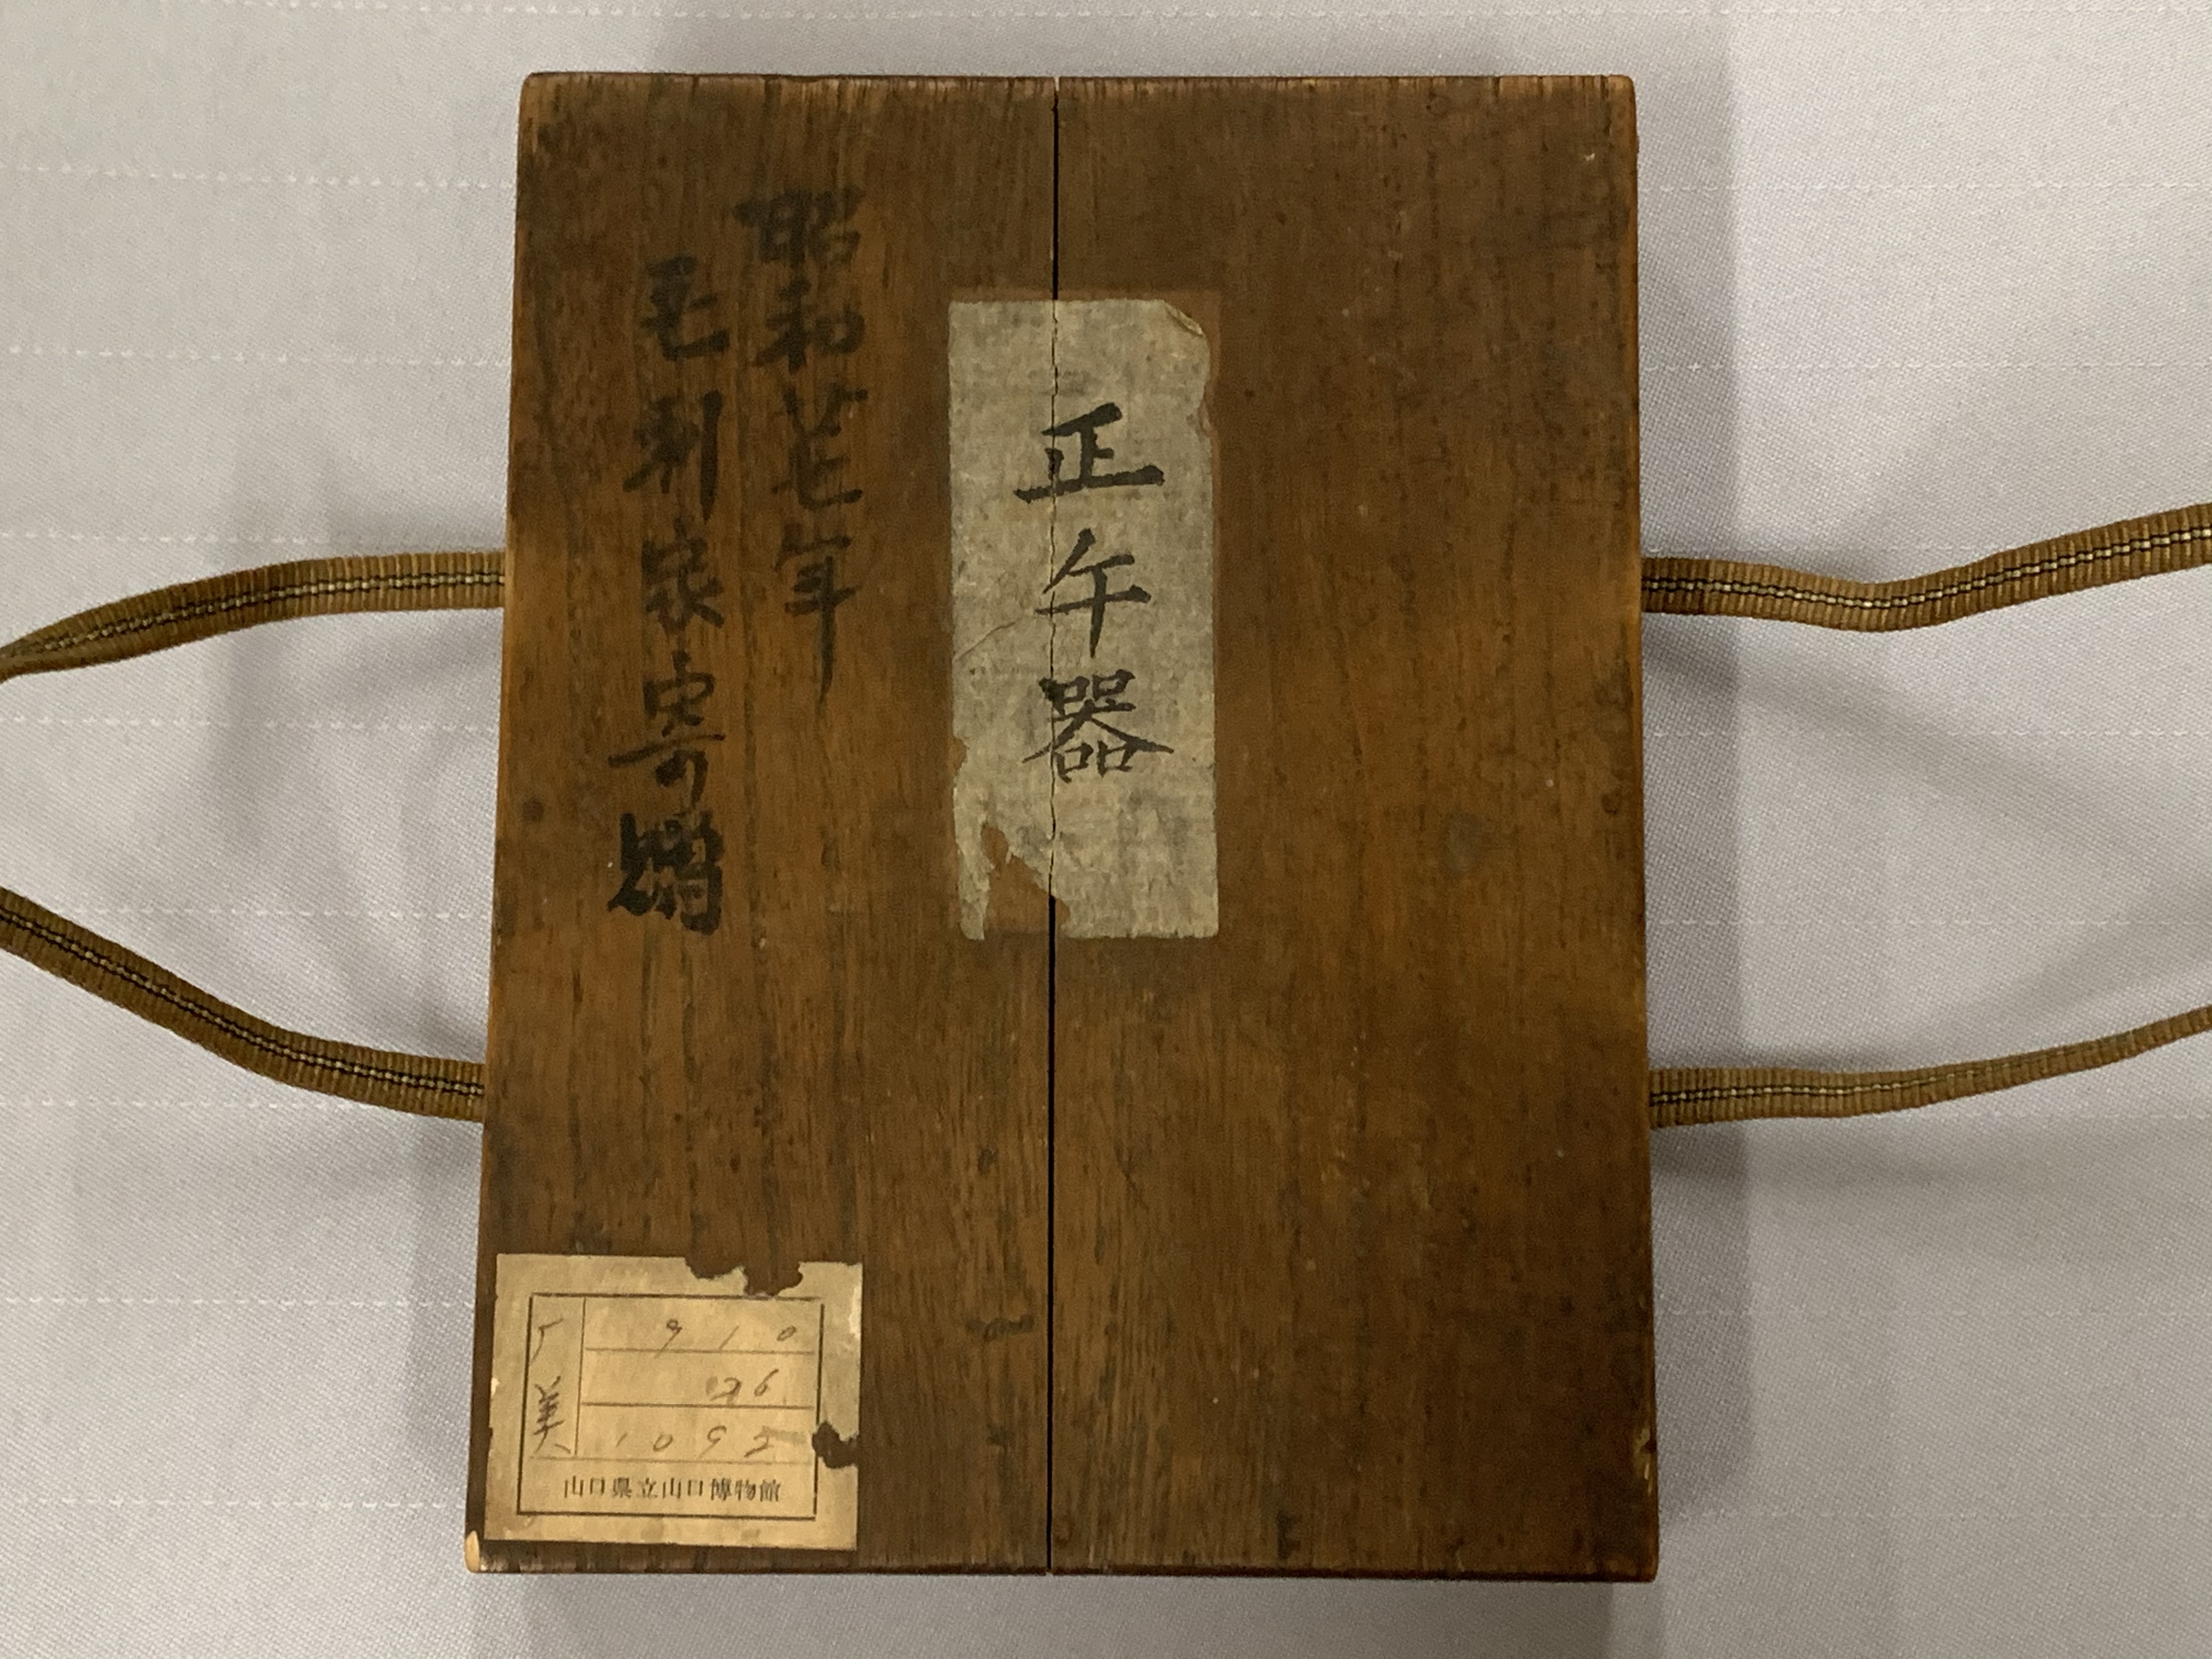 正午器
昭和廿七年
毛利家寄贈
910
美
26
1095
山口県立山口博物館